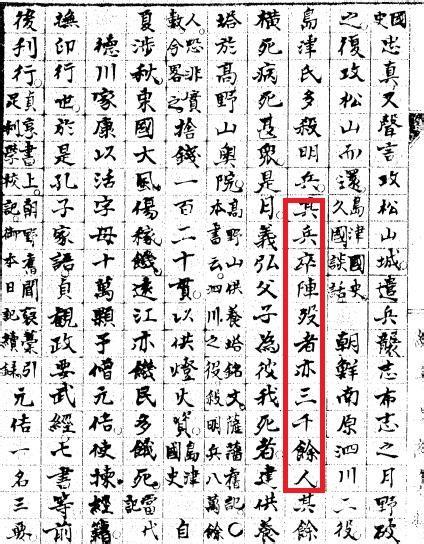 国史忠真又聲言攻松山城遣兵襲志布志之月野破
之復攻松山而還島津國史久國談話　朝鮮南原泗川二役
島津氏多殺明兵其兵卒陣歿者亦三千餘人其餘
横死病死甚衆是月義弘父子為彼我死者建供養
塔於高野山奥院高野山供養塔銘文薩藩舊記〇本書云泗川之役殺明兵八萬餘
人恐非實數今畧之捨錢一百二十貫以供燈火資島津國史　自
夏渉秋東國大風傷稼饑遠江亦饑民多餓死當代記
德川家康以活字母十萬顆予僧元佶使揀經籍
撫印行世於是孔子家語貞觀政要武經七書等前
後刊行貞享書上朝野舊聞裒藁引足利學校記御本日記續録元佶一名三要